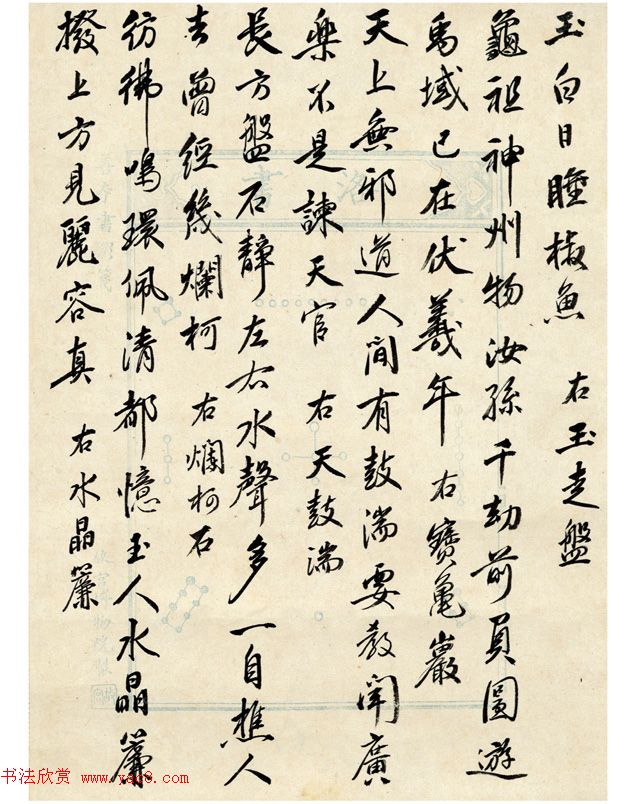 玉白日睡椒魚 右玉走盤
龜祖神州物汝孫千劫前負圖遊
馬域已在伏羲年 右寶龜巖
天上無邪道人間有鼓湍要教聞廣
樂不是諫天官 右天鼓湍
長方盤石靜左右水聲多一自樵人
去曾經幾爛柯 右爛柯石
彷彿鳴環佩清都憶玉人水晶簾
撥上方見麗容真 右水晶簾
洛書
书法欣赏 www.yac8.com